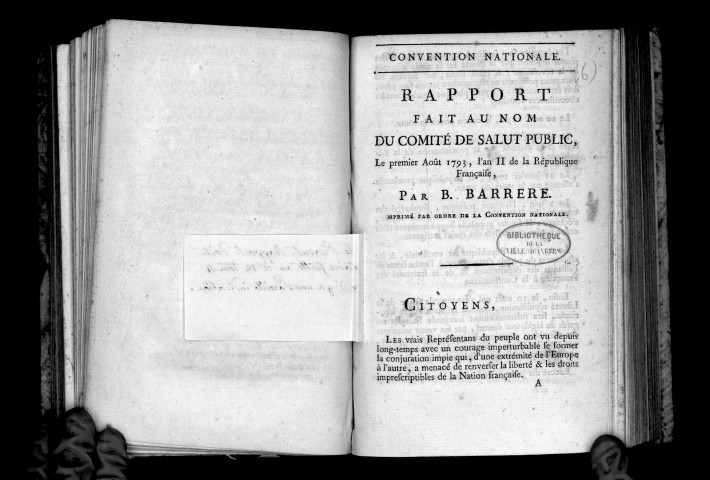 CONVENTION NATIONALE.
6)
RAPPORT
FAIT AU NOM
DU COMITÉ DE SALUT PUBLIC,
Le premier Août 1793, l'an II de la République
Française,
PAR B. BARRERE.
IMPRIMÉ PAR ORDRE DE LA CONVENTION NATIONALE.
BIBLIOTHÈQUE
DE LA
VILLE D'ANGERS
CITOYENS,
LES vrais Représentans du peuple ont vu depuis
long-temps avec un courage imperturbable se former
la conjuration impie qui, d'une extrémité de l'Europe
à l'autre, a menacé de renverser la liberté & les droits
imprescriptibles de la Nation française.
A